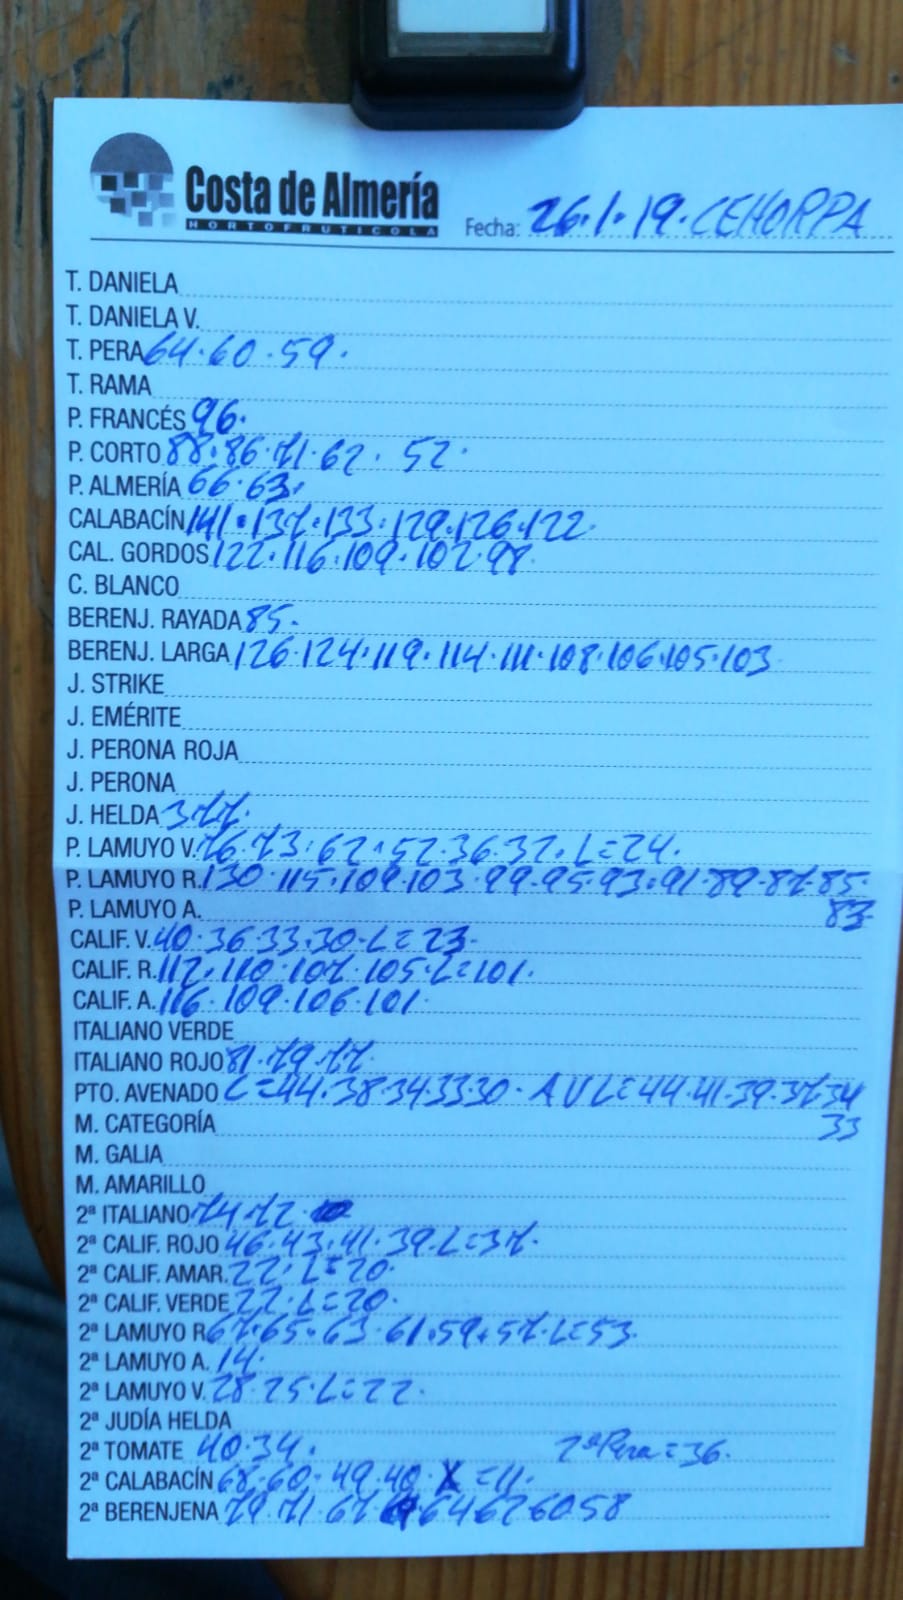 Costa de Almería
HORTOFRUTICOLA
Fecha: 26.1.19. CEHORPA
T. DANIELA
T. DANIELA V.
T. PERA 64.60.59.
T. RAMA
P. FRANCÉS 96.
P. CORTO 88.86.71.62. 52.
P. ALMERÍA 66.63.
CALABACÍN 141.137.133.129.126.122.
CAL. GORDOS 122.116.109.102.98.
C. BLANCO
BERENJ. RAYADA 85.
BERENJ. LARGA 126.124.119.114.111.108.106.105.103
J. STRIKE
J. EMÉRITE
J. PERONA ROJA
J. PERONA
J. HELDA 377.
P. LAMUYO V. 76.73.62.52.36.32. L=24.
P. LAMUYO R. 130.115.109.103.99.95.93.91.89.87.85.
P. LAMUYO A. 83
CALIF. V. 40.36.33.30.L=23.
CALIF. R. 112.110.107.105.L=101.
CALIF. A. 116.109.106.101.
ITALIANO VERDE
ITALIANO ROJO 81.79.77.
PTO. AVENADO L=44.38.34.33.30. AVL=44.41.39.37.34
M. CATEGORÍA 33
M. GALIA
M. AMARILLO
2ª ITALIANO 74.72
2ª CALIF. ROJO 46.43.41.39.L=37.
2ª CALIF. AMAR. 22.L=20.
2ª CALIF. VERDE 22.L=20.
2ª LAMUYO R 67.65.63.61.59.57.L=53.
2ª LAMUYO A. 14.
2ª LAMUYO V. 28.25.L=22.
2ª JUDÍA HELDA
2ª TOMATE 40.34. 2ª Pera=36.
2ª CALABACÍN 68.60.49.40. X=11.
2ª BERENJENA 79 71 67 64 62 60 58